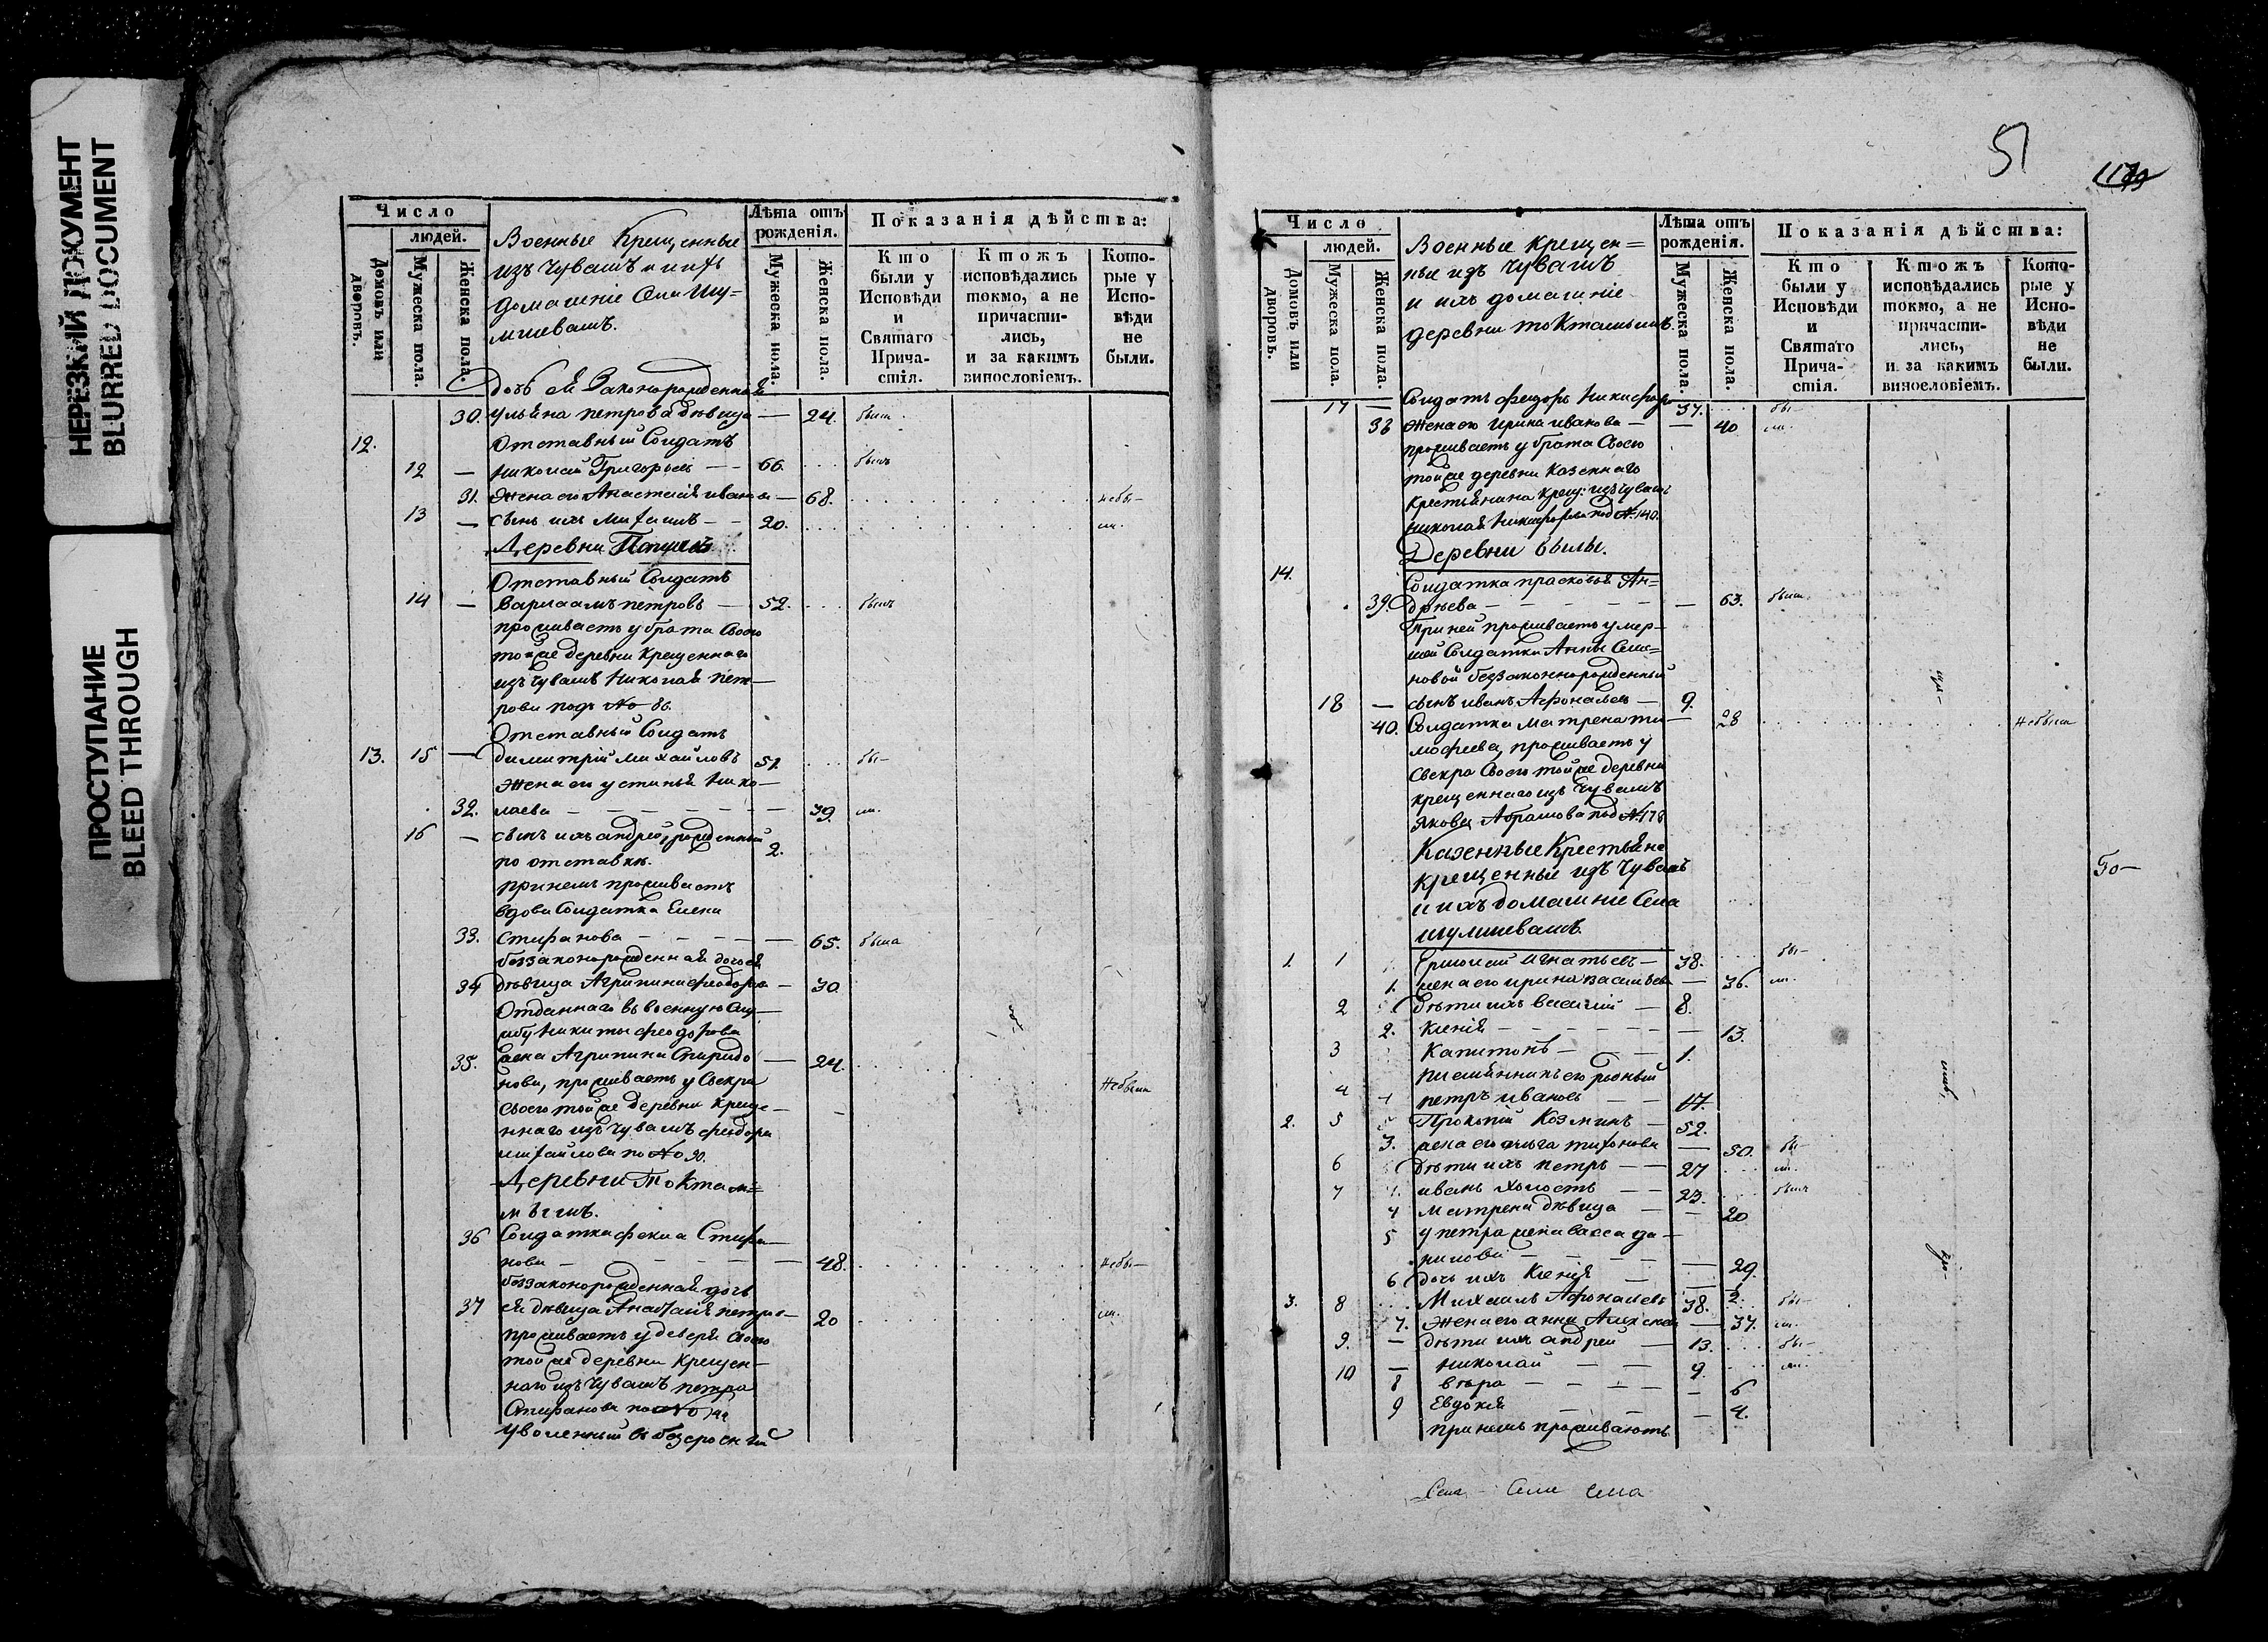 НЕРЕЗКИЙ ДОКУМЕНТ
BLURRED DOCUMENT
ПРОСТУПАНИЕ
BLEED THROUGH
Число
людей.
Домовъ или дворовъ.
Мужеска пола.
Женска пола.
Военные Крещенные
изъ Чувашъ и ихъ
домашніе Села Шу-
Лѣта отъ рожденія.
Мужеска пола.
Женска пола.
Показанія дѣйства:
Кто были у Исповѣди и Святаго Прича- стія.
Ктожъ исповѣдались токмо, а не причасти- лись, и за какимъ винословіемъ.
Кото- рые у Испо- вѣди не были.
дочь ея Законорожденная
30. Ульяна петрова дѣвица — 24. была
12. Отставный Солдатъ
12 — Николай Григорьевъ — — 66. былъ
31. Жена его Анастасія иванова — 68. небы-
13 — сынъ ихъ Михаилъ — — 20. ли.
Деревни
Отставный Солдатъ
14 — Варлаамъ петровъ — 52. былъ
проживаетъ у брата своего
тойже деревни Крещеннаго
изъ Чувашъ Николая пет-
рова подъ № 86.
Отставный Солдатъ
13. 15 — димитрій михайловъ 51. бы-
Жена его устинья Нико-
32. лаева — — — — — — 39. ли.
16 — сынъ ихъ андрей, рожденный 2.
по отставкѣ.
при немъ проживаетъ
вдова Солдатка Елена
33. Стифанова — — — — 65. была
беззаконорожденная дочь ея
34 дѣвица Агрипина феодорова — 30
Отданнаго въ военную Слу-
жбу Никиты феодорова
35. жена Агрипина Спиридо — 24.
нова, проживаетъ у Свекра Небыла
своего тойже деревни Креще-
ннаго изъ Чувашъ феодора
михайлова по № 30.
Деревни Токтам-
36 Солдатка фекла Стифа-
нова — — — — — 48. небы-
беззаконорожденная дочь
37 ея дѣвица петров- 20 ли.
проживаетъ у деверя своего
тойже деревни Крещен-
наго изъ Чувашъ петра
Стифанова по №
Уволенный въ безсрочный
51
Число
людей.
Домовъ или дворовъ.
Мужеска пола.
Женска пола.
Военные Крещен=
ные изъ Чувашъ
и ихъ домашніе
деревни
Лѣта отъ рожденія.
Мужеска пола.
Женска пола.
Показанія дѣйства:
Кто были у Исповѣди и Святаго Прича- стія.
Ктожъ исповѣдались токмо, а не причасти- лись, и за какимъ винословіемъ.
Кото- рые у Испо- вѣди не были.
17 — Солдатъ феодоръ Никифоро 37. бы-
38 Жена его ирина иванова — — 40 ли.
проживаетъ у брата Своего
тойже деревни Казеннаго
Крестьянина крещ: изъ чувашъ
Николая Никифорова под № 140.
Деревни
14. Солдатка прасковья Ан=
39. дрѣева — — — — — — 63. была
При ней проживаетъ умер-
шей Солдатки Анны Сели-
новой беззаконнорожденный
18 — сынъ иванъ Афонасьев — 9.
40. Солдатка матрена ти — 28 небыла
мофеева, проживаетъ у
Свекра Своего тойже деревни
крещеннаго изъ Чувашъ
Якова Абрамова под № 178
Казенные Крестьяне
Крещенные изъ Чувашъ
и ихъ домашніе Села
1. 1 игнатьевъ — 38. бы-
1. жена его ирина васильева — 36. ли.
2 дѣти ихъ василій — 8.
2. Ксенія — — — — — — 13.
3 Капитонъ — — — 1.
племянникъ его родный
4 петръ ивановъ — — 17.
2. 5 Прокопій Козминъ — 52.
3. жена его ольга тихонова — 50. бы-
6 дѣти ихъ петръ — — 27 ли.
7 иванъ холостъ — — 23. былъ
4 матрена дѣвица — — 20
5 у петра жена васса да-
нилова — — — — — 29.
6 дочь ихъ Ксенія — — 2.
3. 8 Михаилъ Афонасьевъ 38. бы-
7. Жена его анна — 37. ли.
9. — дѣти ихъ андрей — 13. бы-
10 — николай — — 9. ли.
8 вѣра — — — — — 6
9 Евдокія — — — 4.
при немъ проживаютъ